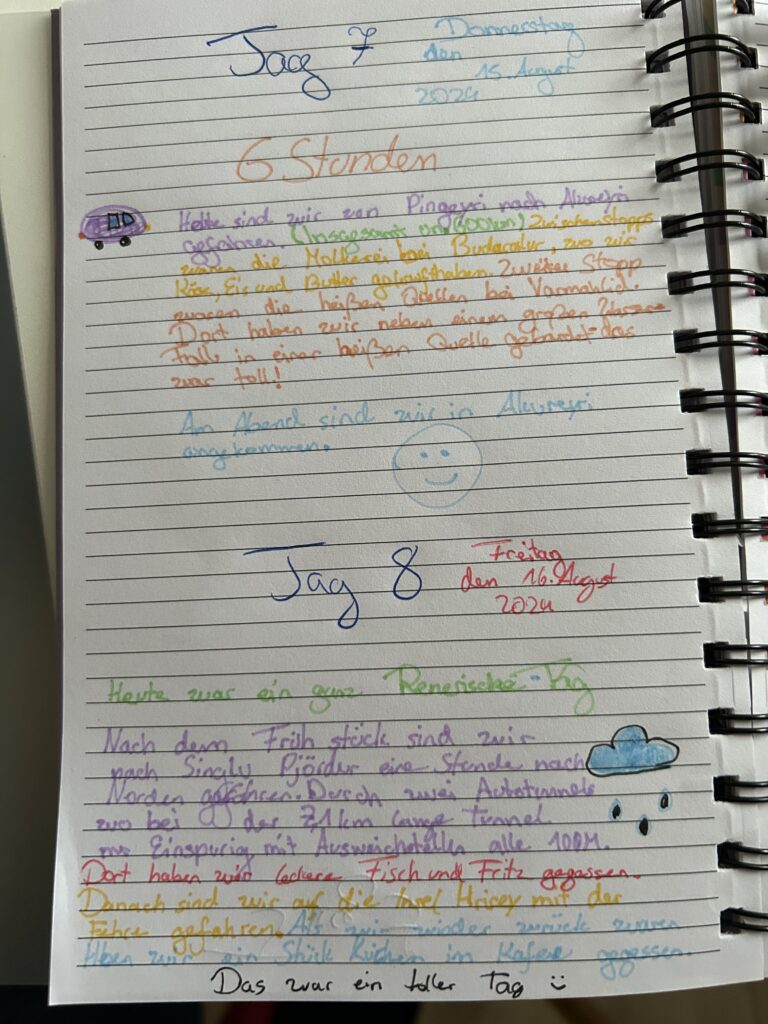 Tag 7
Donnerstag
den
15. August
2024
6 Stunden
Heute sind wir von Pingeyri nach Akureyri
gefahren. (Insgesamt 600km) Zwischenstopps
waren die Molkerei bei Budardalur, wo wir
Käse, Eis und Butter gekauft haben. Zweiter Stopp
waren die heißen Quellen bei Varmahlid.
Dort haben wir neben einem großen Wasser
Falls in einer heißen Quelle gebadet-das
war toll!
Am Abend sind wir in Akureyri
angekommen.
Tag 8
Freitag
den 16. August
2024
Heute war ein ganz Renerische
Nach dem Früh stück sind wir
nach Pjördur eine Stunde nach
Norden gefahren. Durch zwei Autotunnels
wo bei der 7,1 km lange Tunnel
Einspurig mit Ausweichstellen alle 100M.
Dort haben wir leckere Fisch und Fritz gegessen.
Danach sind wir auf die Insel Hrisey mit der
Fehre gefahren. Alt wir wieder zurück waren
Hben wir ein Stück Kuchen im Kafee gegessen.
Das war ein toller Tag